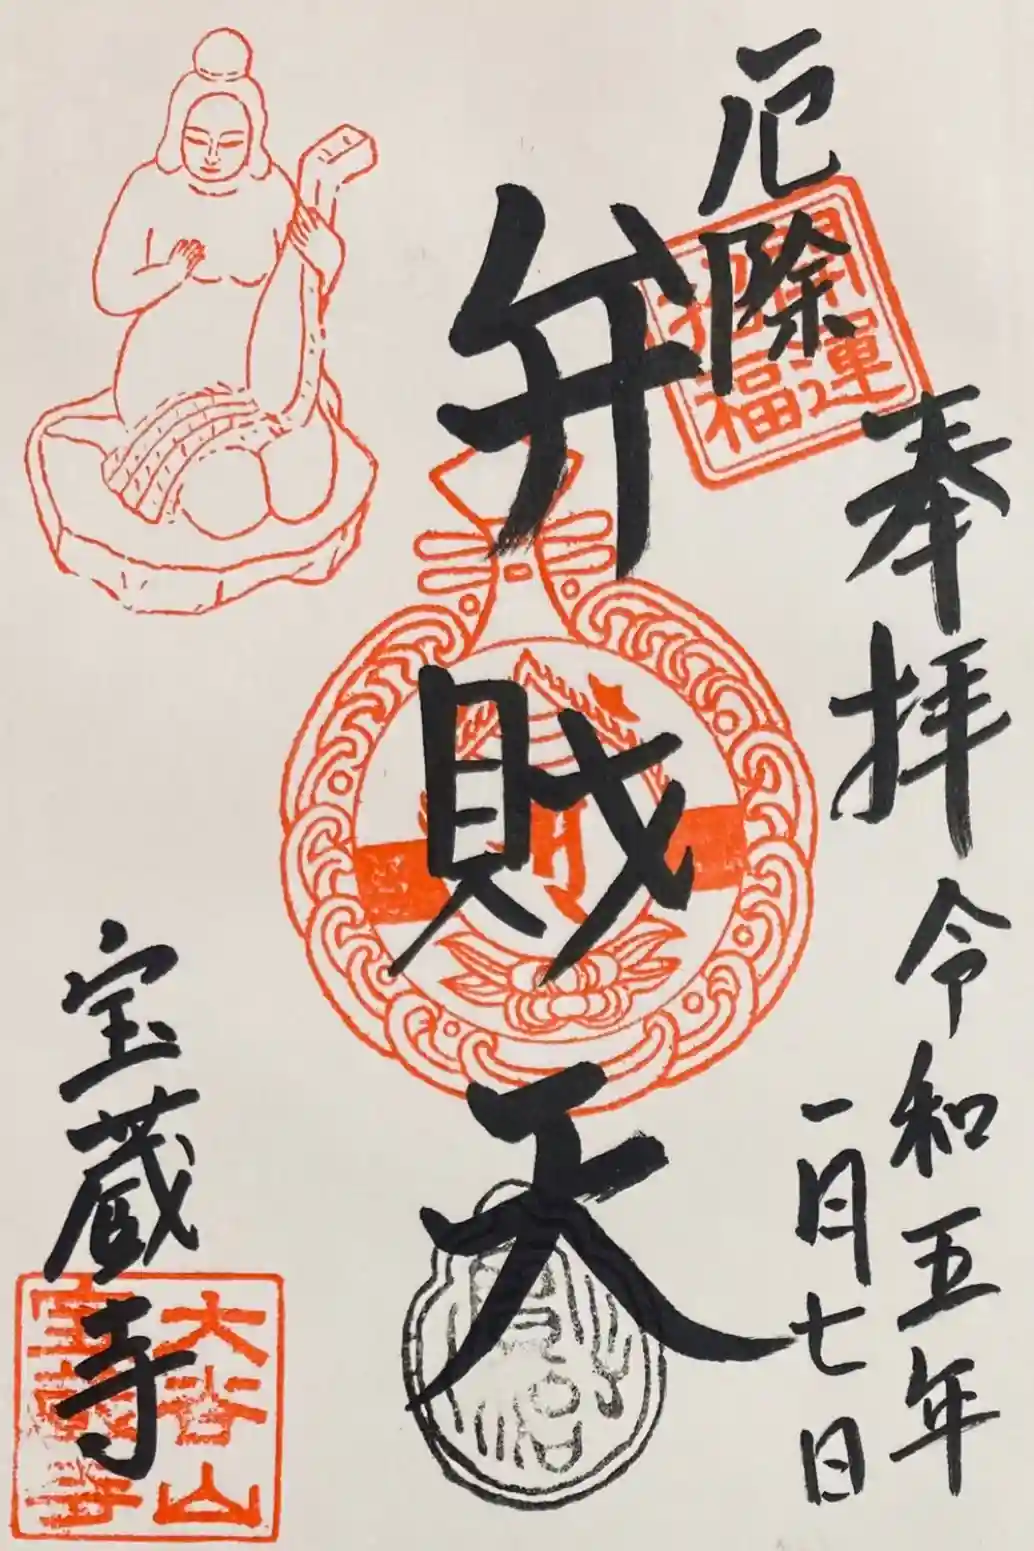 奉拝
令和五年
一月七日
厄除
開運
招福
弁財天
宝蔵寺
大谷山
宝蔵寺